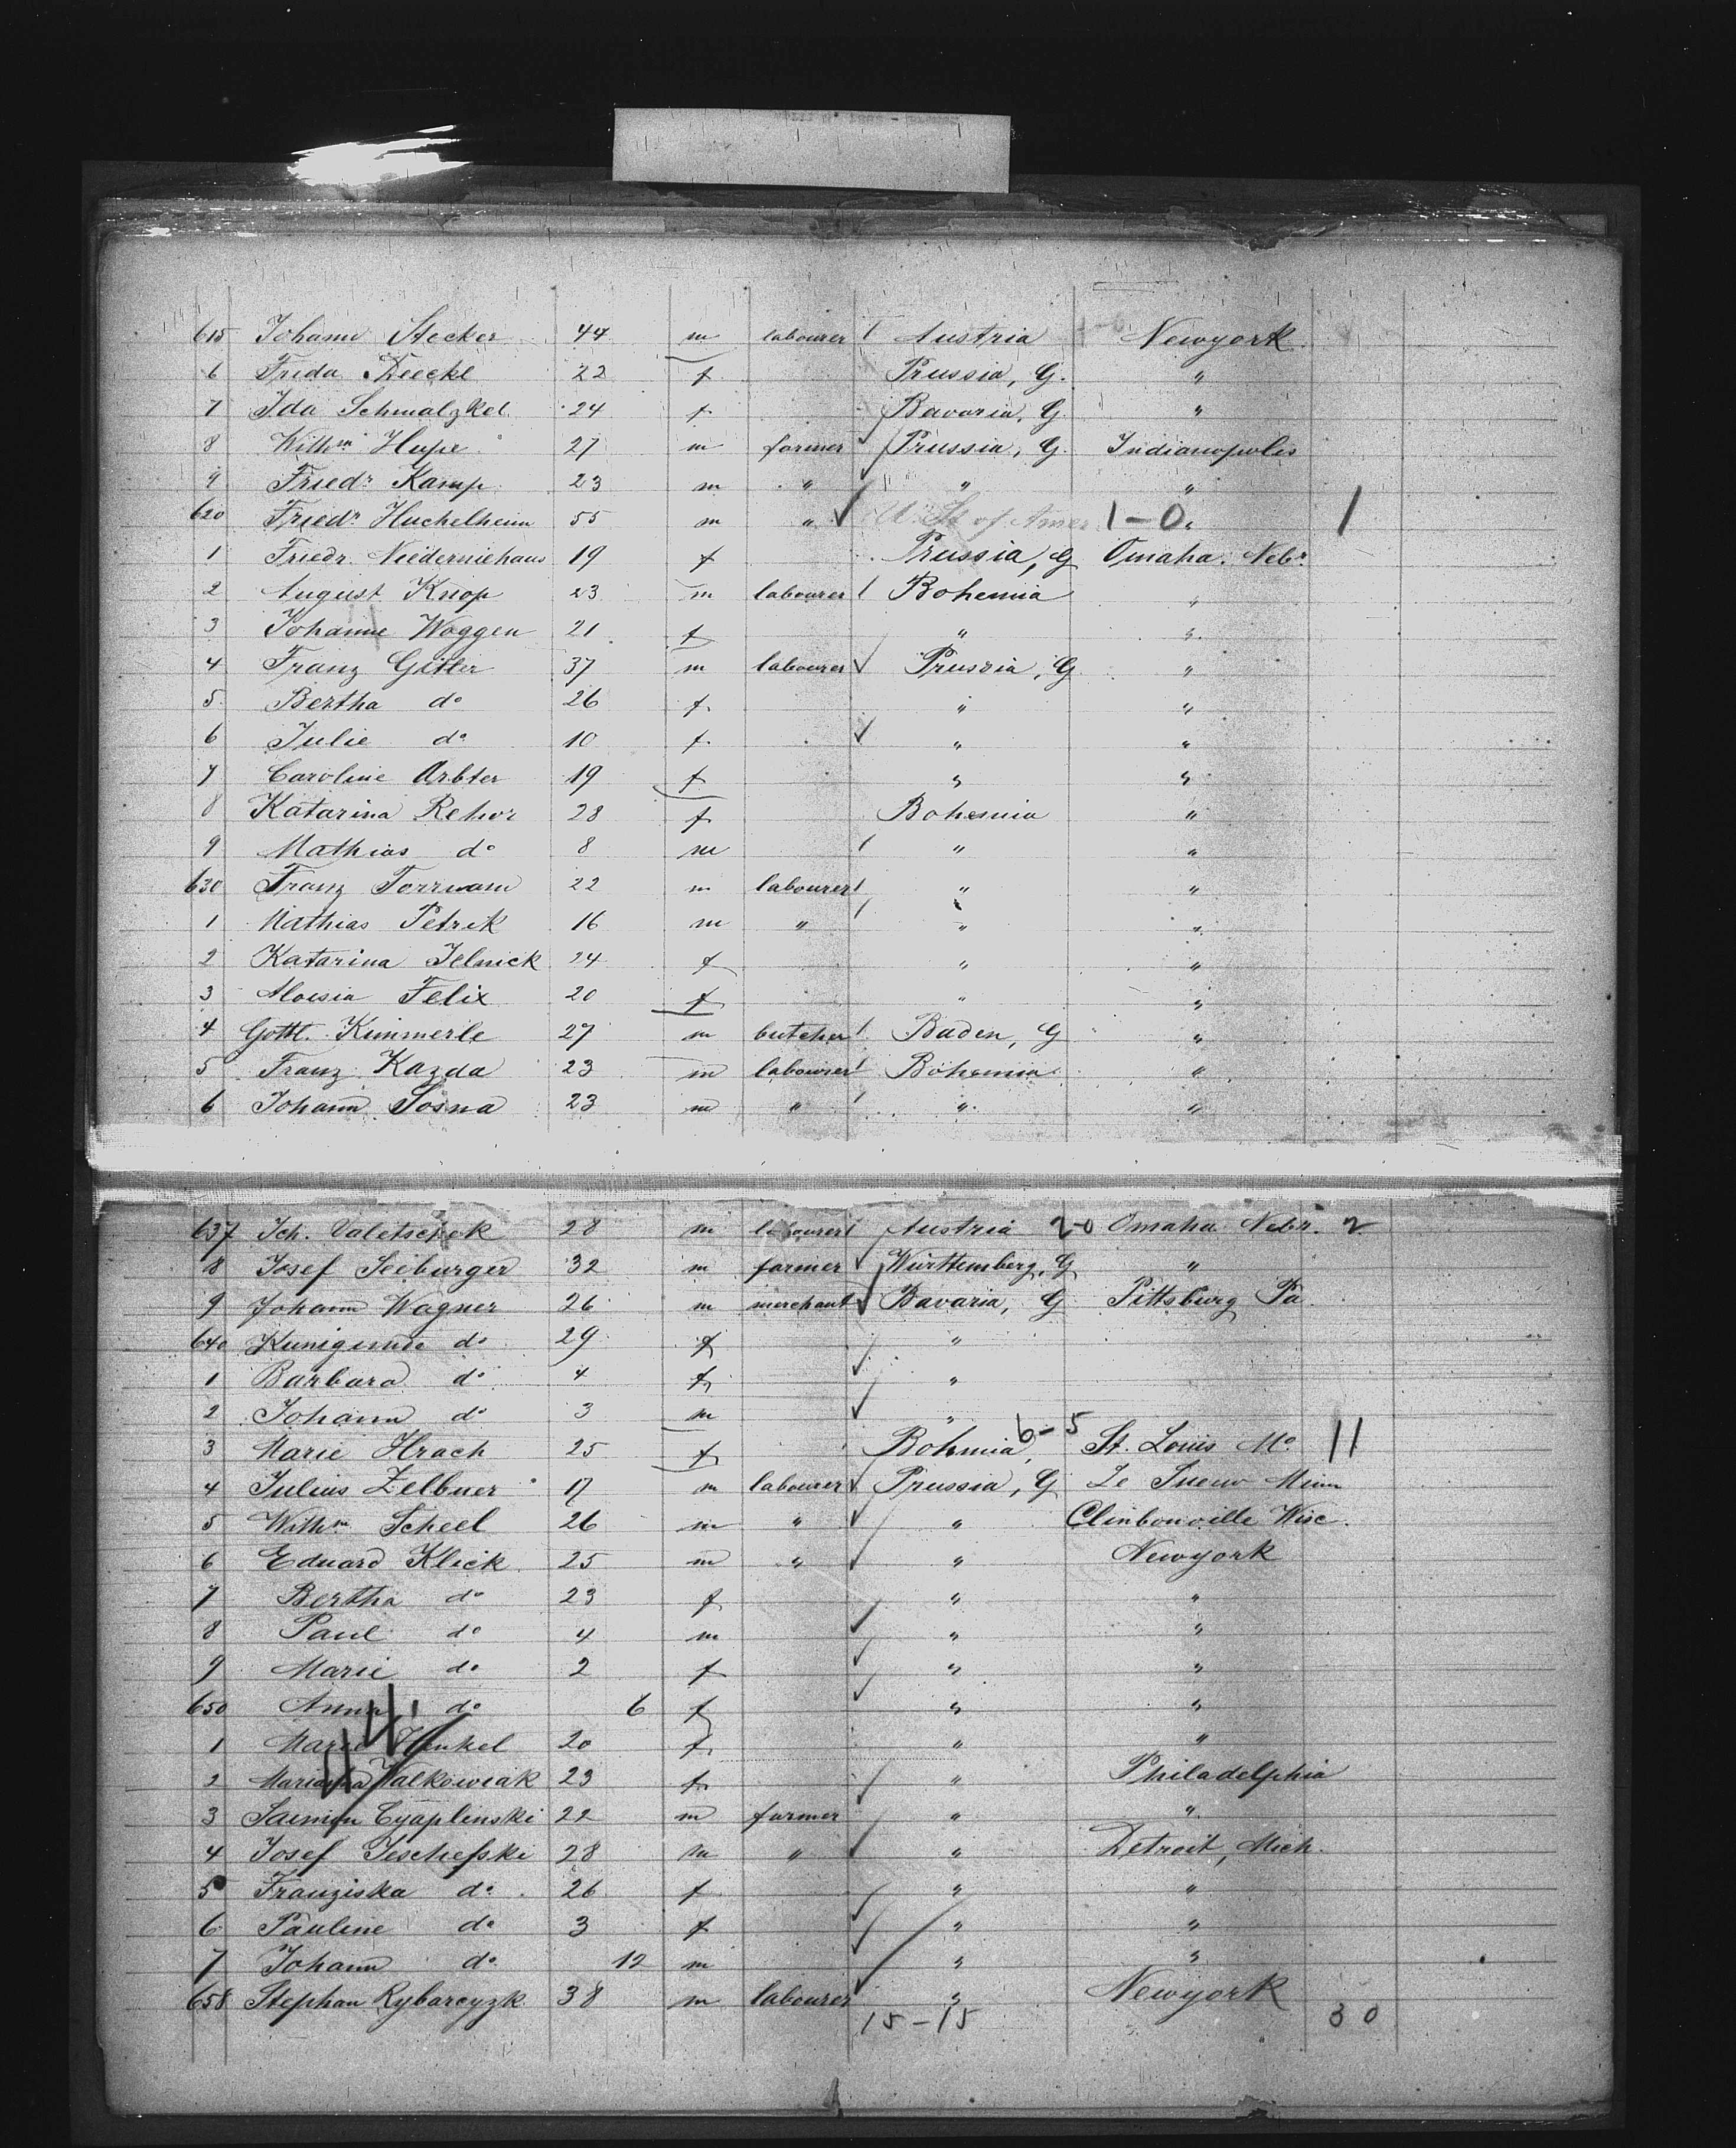 615 Johann Stecker 44 m labourer Austria Newyork
6 Frida Deeckl 22 f Prussia, G. "
7 Ida Schmalzkel 24 f Bavaria, G. "
8 Wilhm Hupe 27 m farmer Prussia, G. Indianopolis
9 Friedr Kamp 23 m " " "
620 Friedr Huchelheim 55 m " U. St. of Amer 1-0 " 1
1 Friedr. Niederniehaus 19 f Prussia, G Omaha. Nebr.
2 August Knop 23 m labourer Bohemia "
3 Johanne Woggen 21 f " "
4 Franz Gitler 37 m labourer Prussia, G "
5 Bertha do 26 f " "
6 Julie do 10 f " "
7 Caroline Arbter 19 f " "
8 Katarina Rehor 28 f Bohemia "
9 Mathias do 8 m " "
630 Franz 22 m labourer " "
1 Mathias Petrik 16 m " " "
2 Katarina Jelnick 24 f " "
3 Aloisia Felix 20 f " "
4 Gottl. Kimmerle 27 m butcher Baden, G "
5 Franz Kazda 23 m labourer Bohemia "
6 Johann Sosna 23 m " " "
637 Joh. Valetschek 28 m labourer Austria 2-0 Omaha Nebr. 2
8 Josef Seeburger 32 m farmer Württemberg, G "
9 Johann Wagner 26 m merchant Bavaria, G Pittsburg Pa.
640 Kunigunde do 29 f "
1 Barbara do 4 f "
2 Johann do 3 m "
3 Marie Hrach 25 f Bohmia, 6-5 St. Louis Mo. 11
4 Julius Zelbuer 17 m labourer Prussia, G Le Sueur Minn
5 Wilhm Scheel 26 m " " Clinbonville Wisc.
6 Eduard Klick 25 m " " Newyork
7 Bertha do 23 f " "
8 Paul do 4 m " "
9 Marie do 2 f " "
650 Anna do 6 f " "
1 Marie Henkel 20 f " "
2 Marianna Walkowiak 23 f " Philadelphia
3 Saimon Czaplinski 22 m farmer " "
4 Josef Jeschefski 28 m " " Detroit, Mich.
5 Franziska do. 26 f " "
6 Pauline do 3 f " "
7 Johann do 12 m " "
658 Stephan Rybarczyk 38 m labourer " Newyork
15-15 30